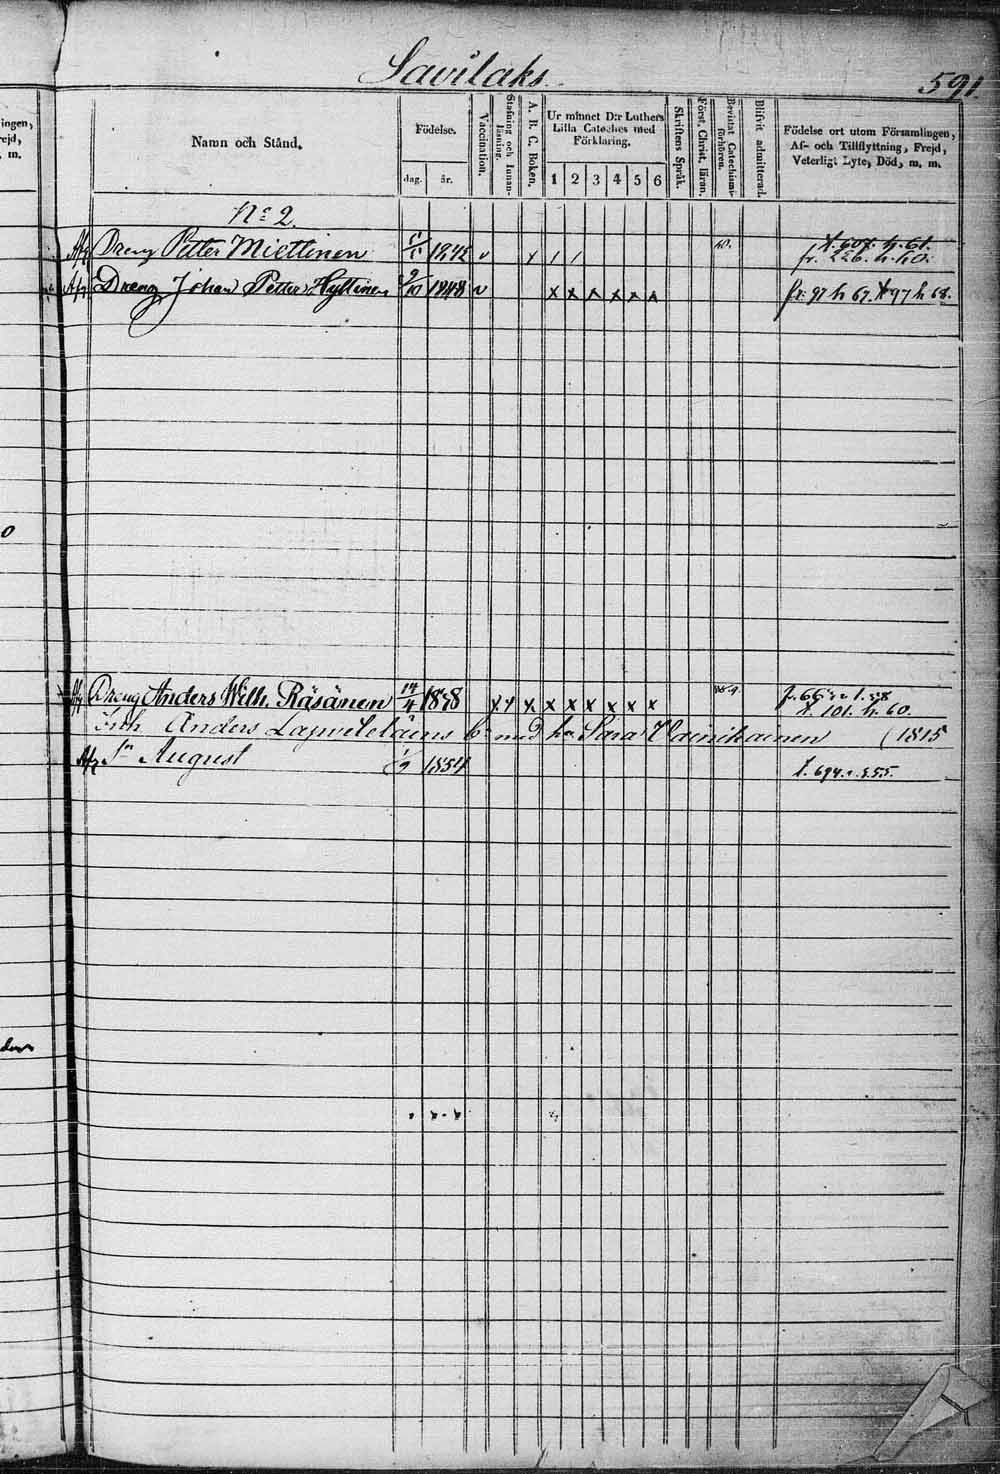 Savilaks.
591.
Namn och Stånd.
Födelse.
dag.
år.
Vaccination.
Stafning och Innan-
läsning.
A. B. C. Boken.
Ur minnet D:r Luthers
Lilla Cateches med
Förklaring.
1 2 3 4 5 6
Skriftens Språk.
Först. Christ. läran.
Bevistat Catechismi-
förhören.
Blifvit admitterad.
Födelse ort utom Församlingen,
Af- och Tillflyttning, Frejd,
Veterligt Lyte, Död, m. m.
ingen,
rejd,
m.
No 2.
Afg Dreng Petter Miettinen 1842 v x / / 60. t. 607. h. 61.
fr. 226. h. 60.
Afg Dreng Johan Petter Hyttinen 9/10 1848 v x x x x x x fr. 97 h 67. t 97 h 68.
Afg Dreng Anders Wilh. Räsänen 14/4 18 8 x x x x x x x x x
t. 101. h. 60.
Inh Anders Lapveteläins med Sara Vainikainen (1815
Afg Sn August 1/9 1854 t. 694. 555.